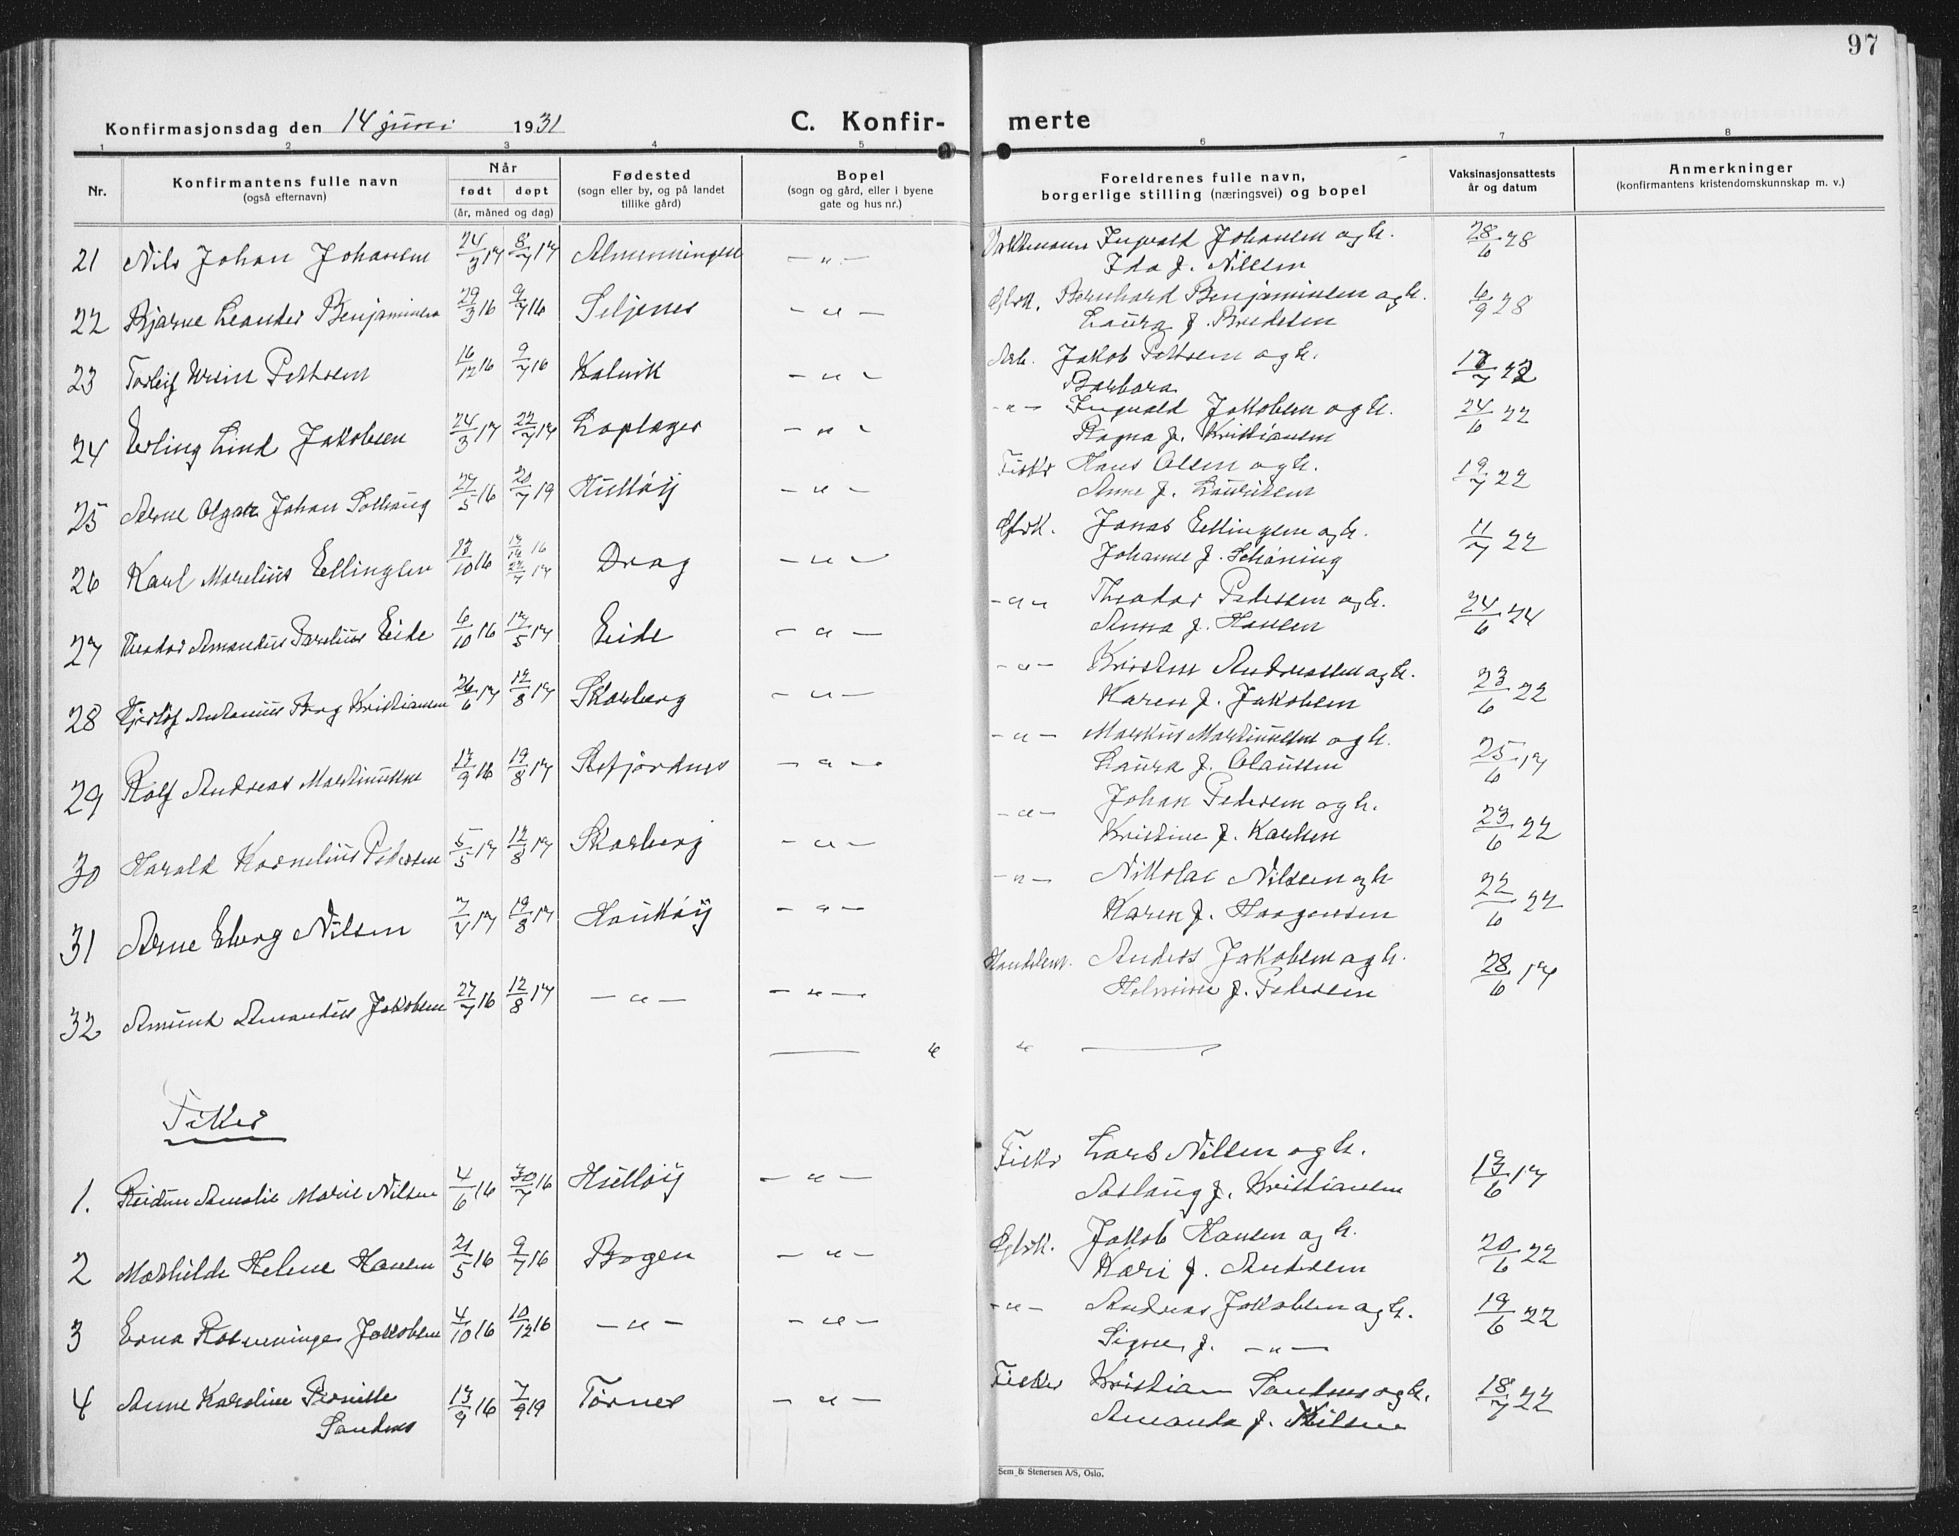 97
Konfirmasjonsdag den 14 juni 1931
C. Konfir- merte
1 2 3 4 5 6 7 8
Nr.
Konfirmantens fulle navn
(også efternavn)
Når
født døpt
(år, måned og dag)
Fødested
(sogn eller by, og på landet
tillike gård)
Bopel
(sogn og gård, eller i byene
gate og hus nr.)
Foreldrenes fulle navn,
borgerlige stilling (næringsvei) og bopel
Vaksinasjonsattests
år og datum
Anmerkninger
(konfirmantens kristendomskunnskap m. v.)
21 Nils Johan Johansen 24/3 17 8/7 17 Almenningen -"- Ingvald Johansen og h. 28/6 28
Ida f. Nilsen
22 Bjarne Leander Benjaminsen 29/3 16 9/7 16 Seljenes -"- Gbrk. Bernhard Benjaminsen og h. 6/9 28
Laura f. Bredesen
23 Torleif Pettersen 16/12 16 9/7 16 Kalvik -"- Arb. Jakob Pettersen og h.
Barbara
24 Erling Lind Jakobsen 24/3 17 22/7 17 Laplager -"- -"- Ingvald Jakobsen og h. 24/6 22
Ragna f. Kristiansen
25 Arne Olgar Johan Solhaug 27/5 16 20/7 19 Hulløy -"- Fisker Hans Olsen og h. 19/7 22
Anne f. Lauritsen
26 Karl Marelius Ellingsen 13/10 16 Drag -"- Gbrk. Jonas Ellingsen og h. 11/7 22
Johanne f. Schøning
27 Teodor Amandus Parelius Eide 6/10 16 17/5 17 Eide -"- -"- Theodor Pedersen og h. 24/6 24
Anna f. Hansen
28 Antonius Borg Kristiansen 26/6 17 12/8 17 Skarberg -"- -"- Kristen Andreassen og h. 23/6 22
Karen f. Jakobsen
29 Rolf Andreas Martinussen 17/9 16 19/8 17 Kefjordnes -"- -"- Markus Martinussen og h. 25/6 17
Laura f. Claussen
30 Harald Kornelius Pedersen 5/5 17 12/8 17 Skarberg -"- -"- Johan Pedersen og h. 23/6 22
Kristine f. Karlsen
31 Arne Eberg Nilsen 7/4 17 19/8 17 Haukøy -"- -"- Nikolai Nilsen og h 22/6 22
Karen f. Haagensen
32 Amund Amandus Jakobsen 27/7 16 12/8 17 -"- -"- Handelsm. Anders Jakobsen og h. 28/6 17
Helmine f. Pedersen
" "
Piker
1. Reidun Amalie Marie Nilsen 4/6 16 30/7 16 Hulløy -"- Fisker Lars Nilsen og h. 13/6 17
Aslaug f. Kristiansen
2 Mathilde Helene Hansen 21/5 16 9/7 16 Bogen -"- Gbrk. Jakob Hansen og h. 20/6 22
Kari f. Andersen
3 Erna Jakobsen 4/10 16 10/12 16 -"- -"- -"- Andreas Jakobsen og h. 19/6 22
Signe f. -"-
4 Anne Karoline Pernille 13/9 16 7/9 19 Tørnes -"- Fisker Kristian Sandnes og h. 18/7 22
Sandnes Amanda f. Nilsen
Sem & Stenersen A/S, Oslo.